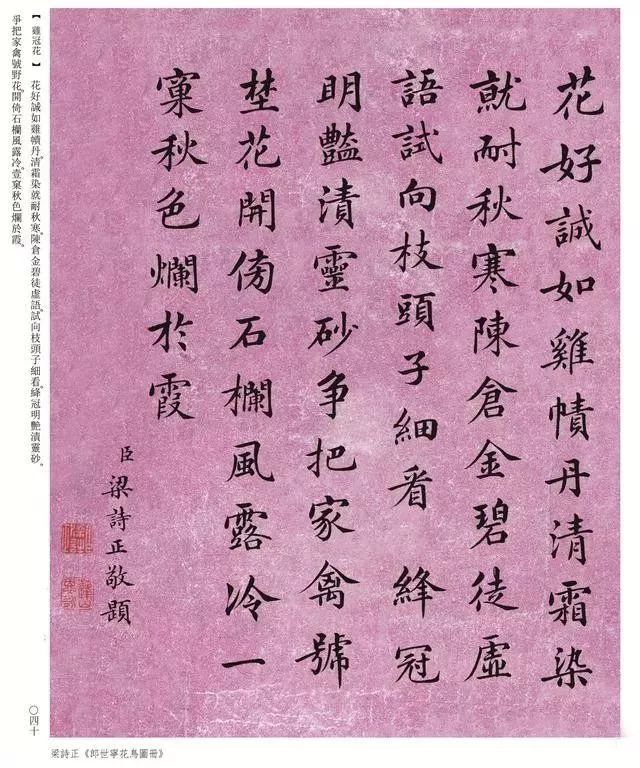 花好誠如雞幘丹清霜染
就耐秋寒陳倉金碧徒虛
語試向枝頭子細看 絳冠
明豔漬靈砂争把家禽號
埜花開傍石欄風露冷一
窠秋色爛於霞
臣梁詩正敬題
【雞冠花】 花好誠如雞幘丹。清霜染就耐秋寒。陳倉金碧徒虛語。試向枝頭子細看。絳冠明艷漬靈砂。
爭把家禽號野花。開倚石欄風露冷。壹窠秋色爛於霞。
〇四十
梁詩正《郎世寧花鳥圖冊》